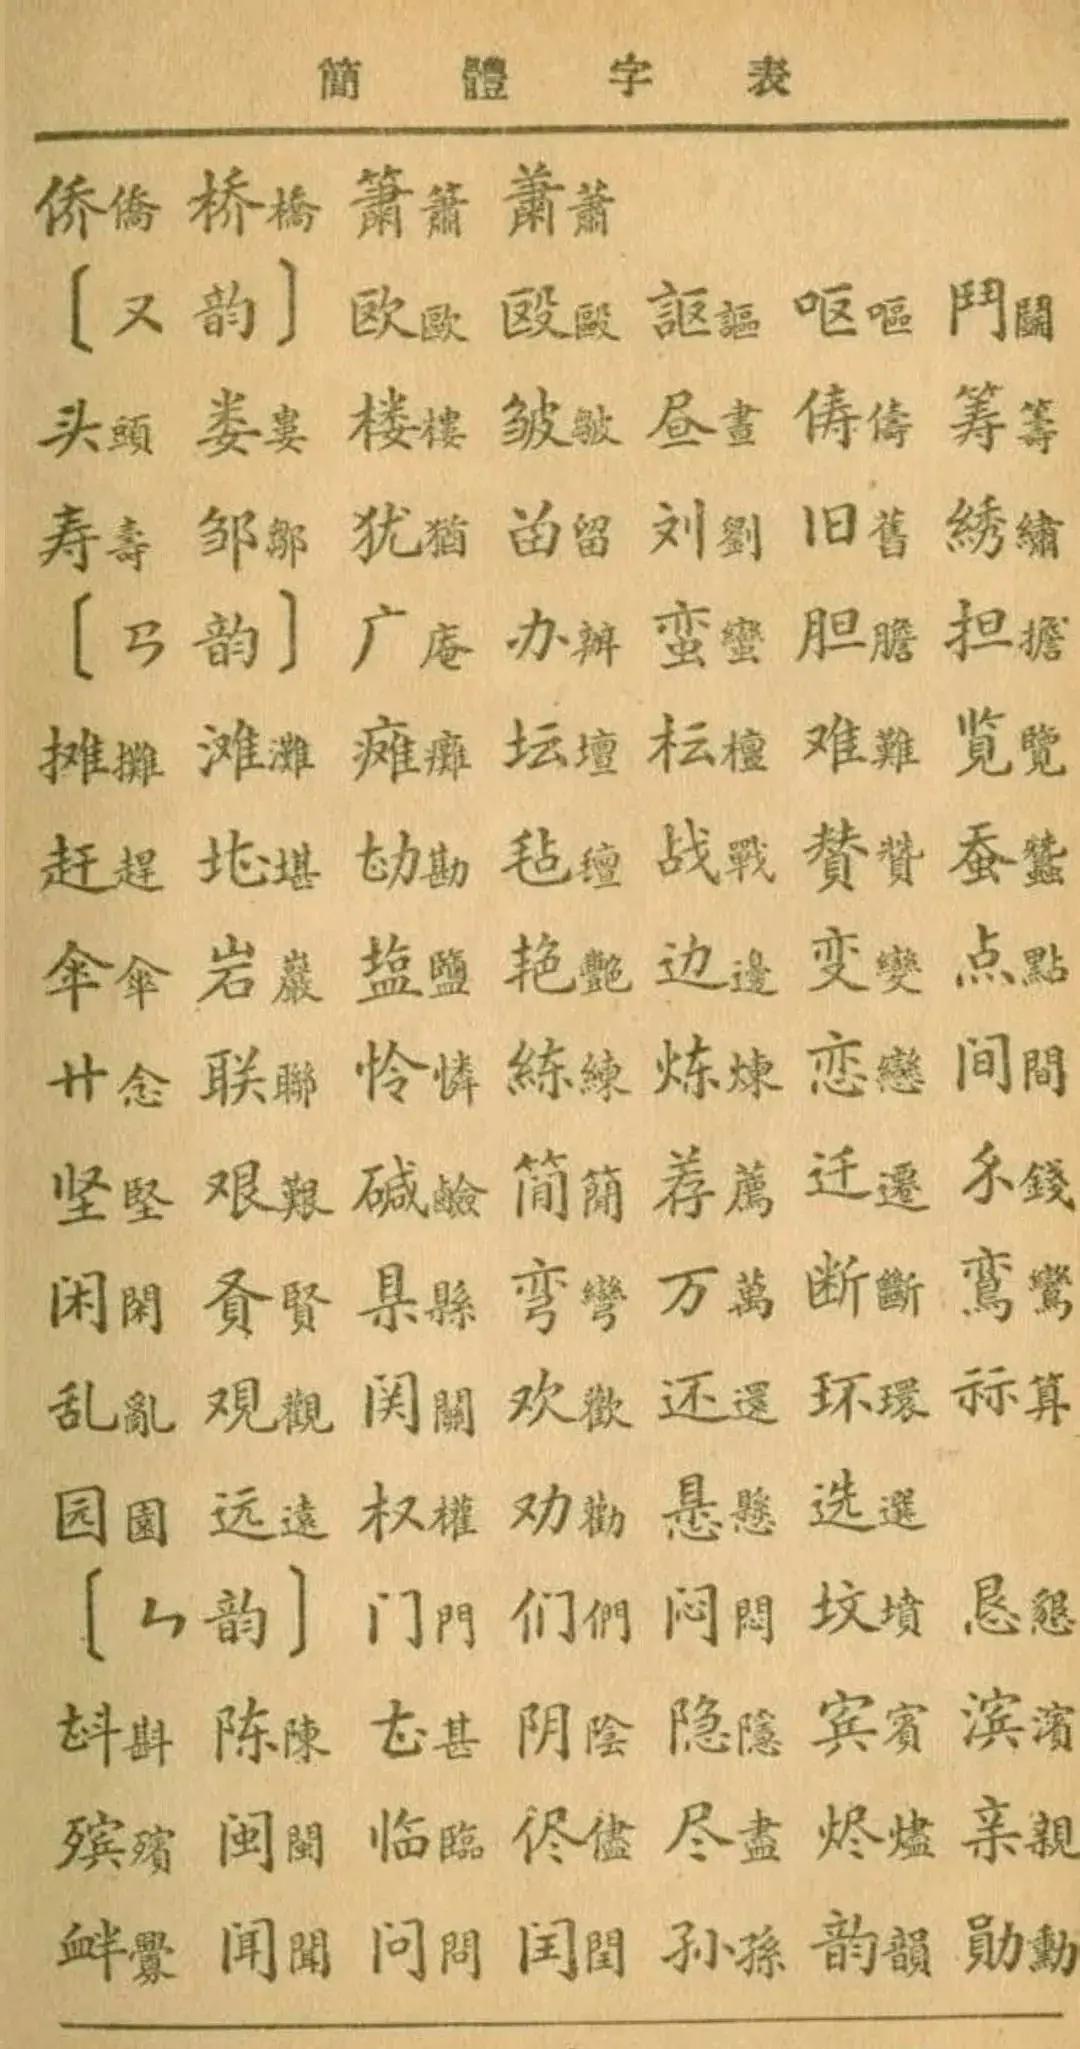 簡體字表
侨僑 桥橋 箫簫 萧蕭
〔ㄡ韵〕 欧歐 殴毆 讴謳 呕嘔 鬥鬭
头頭 娄婁 楼樓 皱皺 昼晝 俦儔 筹籌
寿壽 邹鄒 犹猶 畄留 刘劉 旧舊 綉繡
〔ㄢ韵〕 广庵 办辦 蛮蠻 胆膽 担擔
摊攤 滩灘 瘫癱 坛壇 枟檀 难難 览覽
赶趕 堪 勘 毡氈 战戰 賛贊 蚕蠶
伞傘 岩巖 塩鹽 艳艷 边邊 变變 点點
廿念 联聯 怜憐 練 炼煉 恋戀 间間
坚堅 艰艱 碱鹼 简簡 荐薦 迁遷 錢
闲閑 贤賢 县縣 弯彎 万萬 断斷 鸾鸞
乱亂 观觀 関關 欢歡 还還 环環 祘算
园園 远遠 权權 劝勸 悬懸 选選
〔ㄣ韵〕 门門 们們 闷悶 坟墳 恳懇
斟 陈陳 甚 阴陰 隐隱 宾賓 滨濱
殡殯 闽閩 临臨 侭儘 尽盡 烬燼 亲親
衅釁 闻聞 问問 闰閏 孙孫 韵韻 勛勳